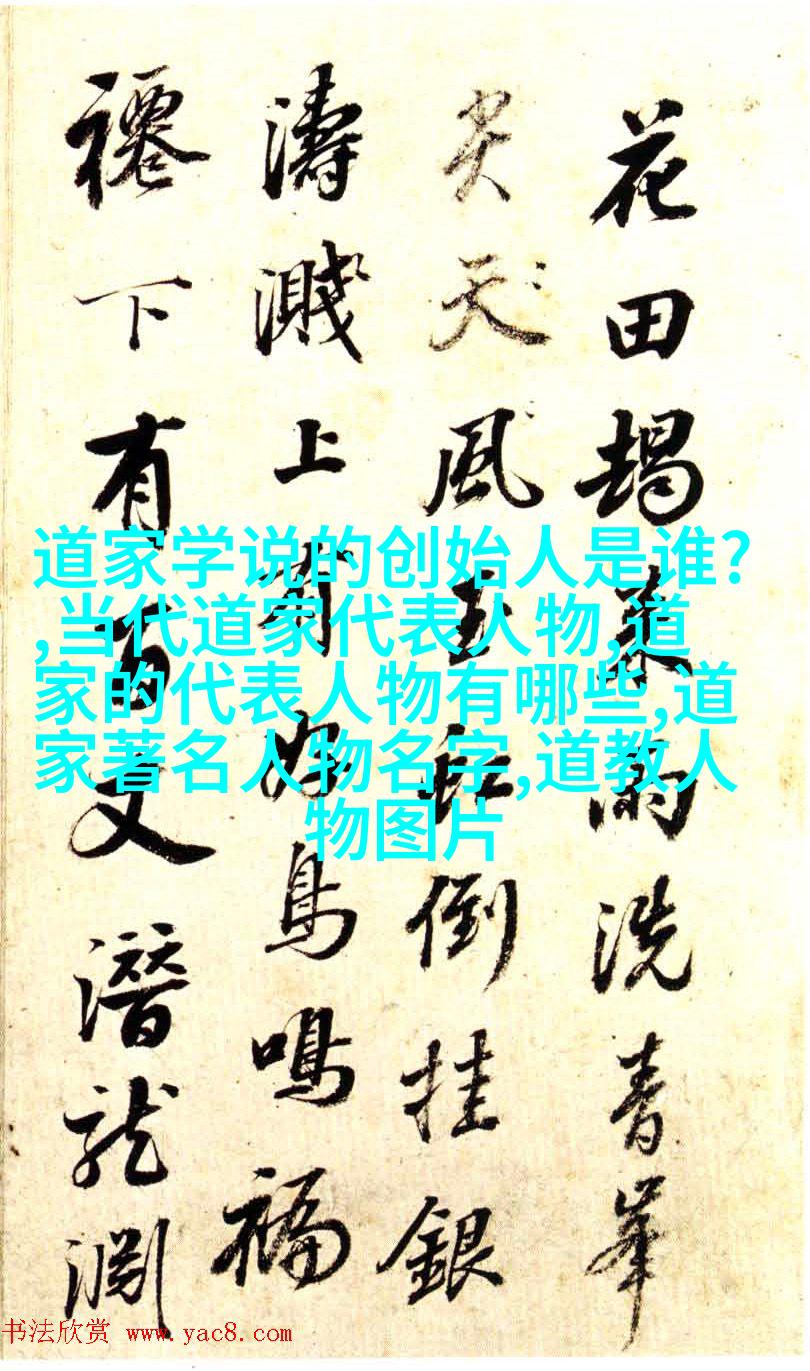 花田揭慕雨洗青峯
光天〻風玉虹倒挂銀
濤濺上有好鳥鳴福
禧下有百丈潛龍淵
道家学说的创始人是谁?
,当代道家代表人物,道
家的代表人物有哪些,道
家著名人物名字,道教人
物图片
书法欣赏 www.yac8.com